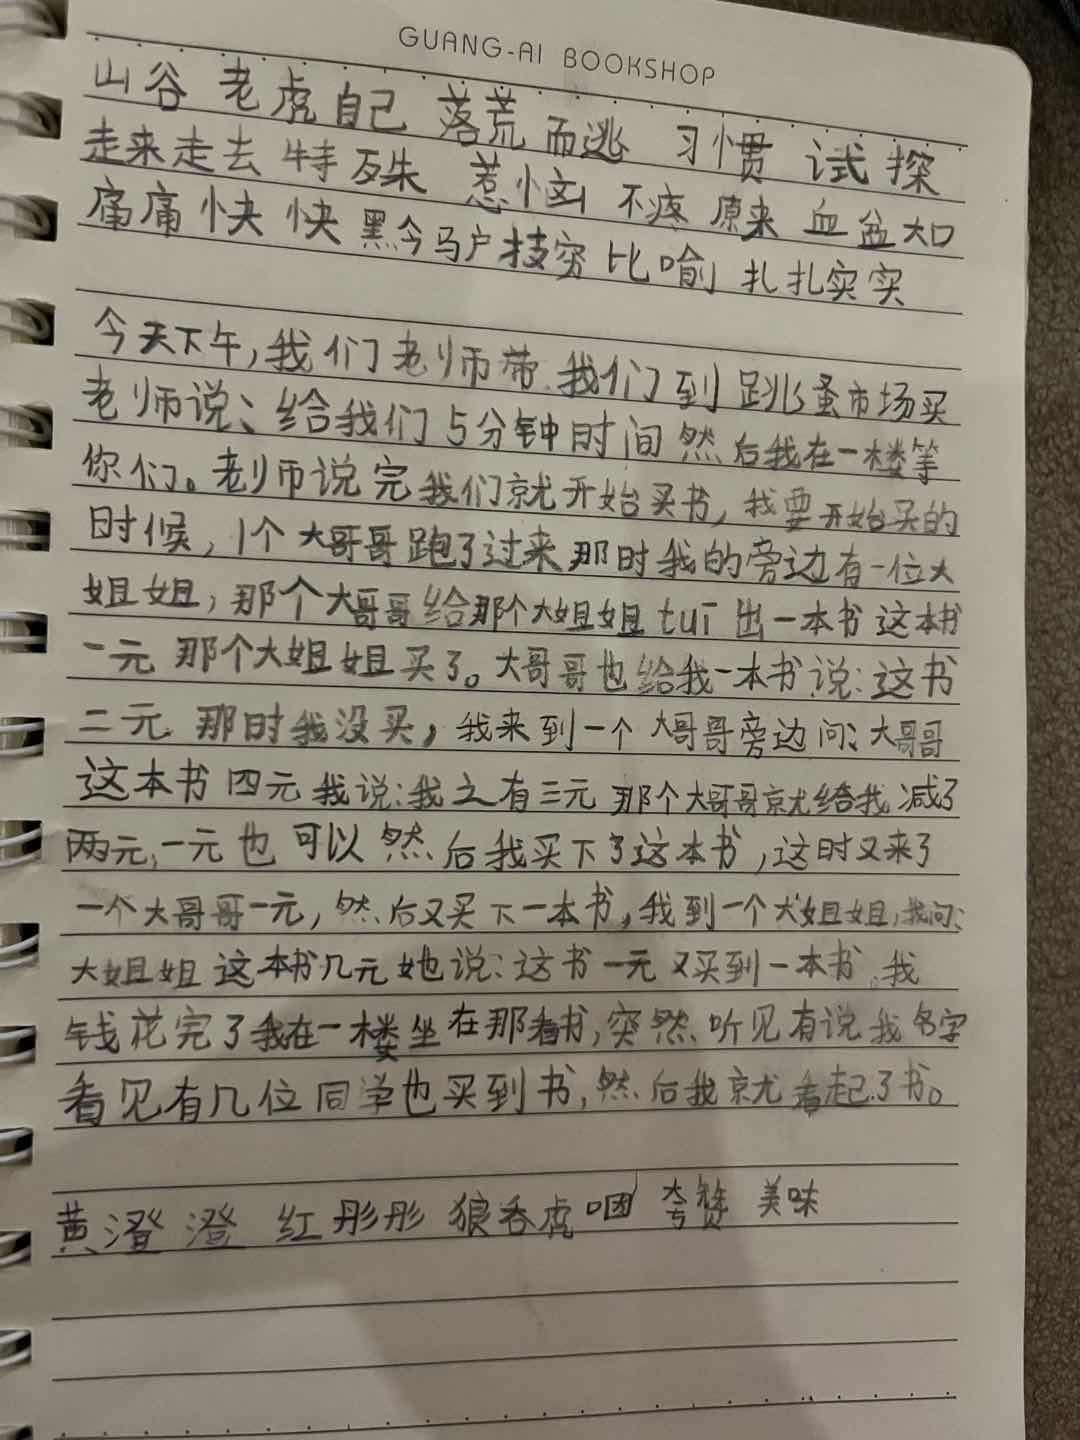 GUANG-AI BOOKSHOP
山谷 老虎自己 落荒而逃 习惯 试探
走来走去 特殊 惹恼 不疼 原来 血盆大口
痛痛快快 黔马户技穷 比喻 扎扎实实
今天下午,我们老师带我们到跳蚤市场买
老师说、给我们5分钟时间然后我在一楼等
你们。老师说完我们就开始买书,我要开始买的
时候,1个大哥哥跑了过来那时我的旁边有一位大
姐姐,那个大哥哥给那个大姐姐tuī出一本书这本书
一元 那个大姐姐买了。大哥哥也给我一本书说:这书
二元 那时我没买,我来到一个大哥哥旁边问:大哥哥
这本书四元我说:我之有三元 那个大哥哥就给我减了
两元,一元也可以然后我买下了这本书,这时又来了
一个大哥哥一元,然后又买下一本书,我到一个大姐姐,我问:
大姐姐这本书几元她说:这书一元又买到一本书.我
钱花完了我在一楼坐在那看书,突然听见有说我名字
看见有几位同学也买到书,然后我就看起了书。
黄澄澄 红彤彤 狼吞虎咽 夸赞 美味